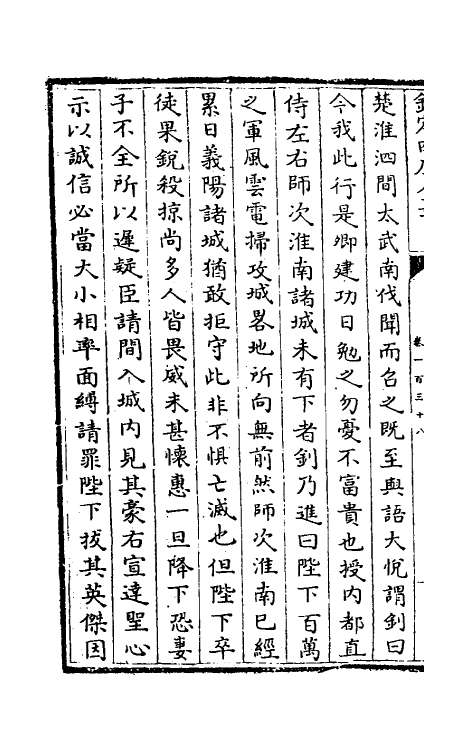 楚淮泗間太武南伐聞而召之既至與語大悅謂釗曰
今我此行是卿建功日勉之勿憂不富貴也授内都直
侍左右師次淮南諸城未有下者釗乃進曰陛下百萬
之軍風雲電掃攻城畧地所向無前然師次淮南已經
累日義陽諸城猶敢拒守此非不惧亡滅也但陛下卒
徒果銳殺掠尚多人皆畏威未甚懷惠一旦降下恐妻
子不全所以遲疑臣請間入城内見其豪右宣達聖心
示以誠信必當大小相率面縛請罪陛下拔其英傑因
卷一百三十八